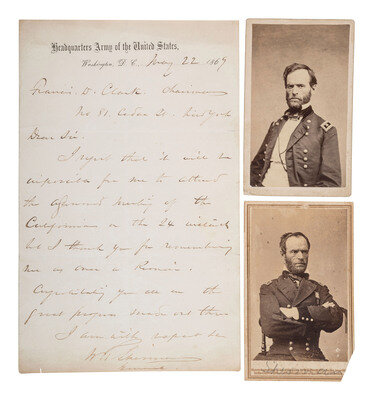 Headquarters Army of the United States,
Washington, D.C. May 22 1869
Francis D. Clark. Chairman
No 81. Cedar St. New York
Dear Sir.
I regret that it will be
impossible for me to attend
the meeting of the
Californians on the 24 instant
but I thank you for remembering
me as once a Pioneer.
Congratulating you all on the
great progress made out there
I am with respect &c
W. T. Sherman
General